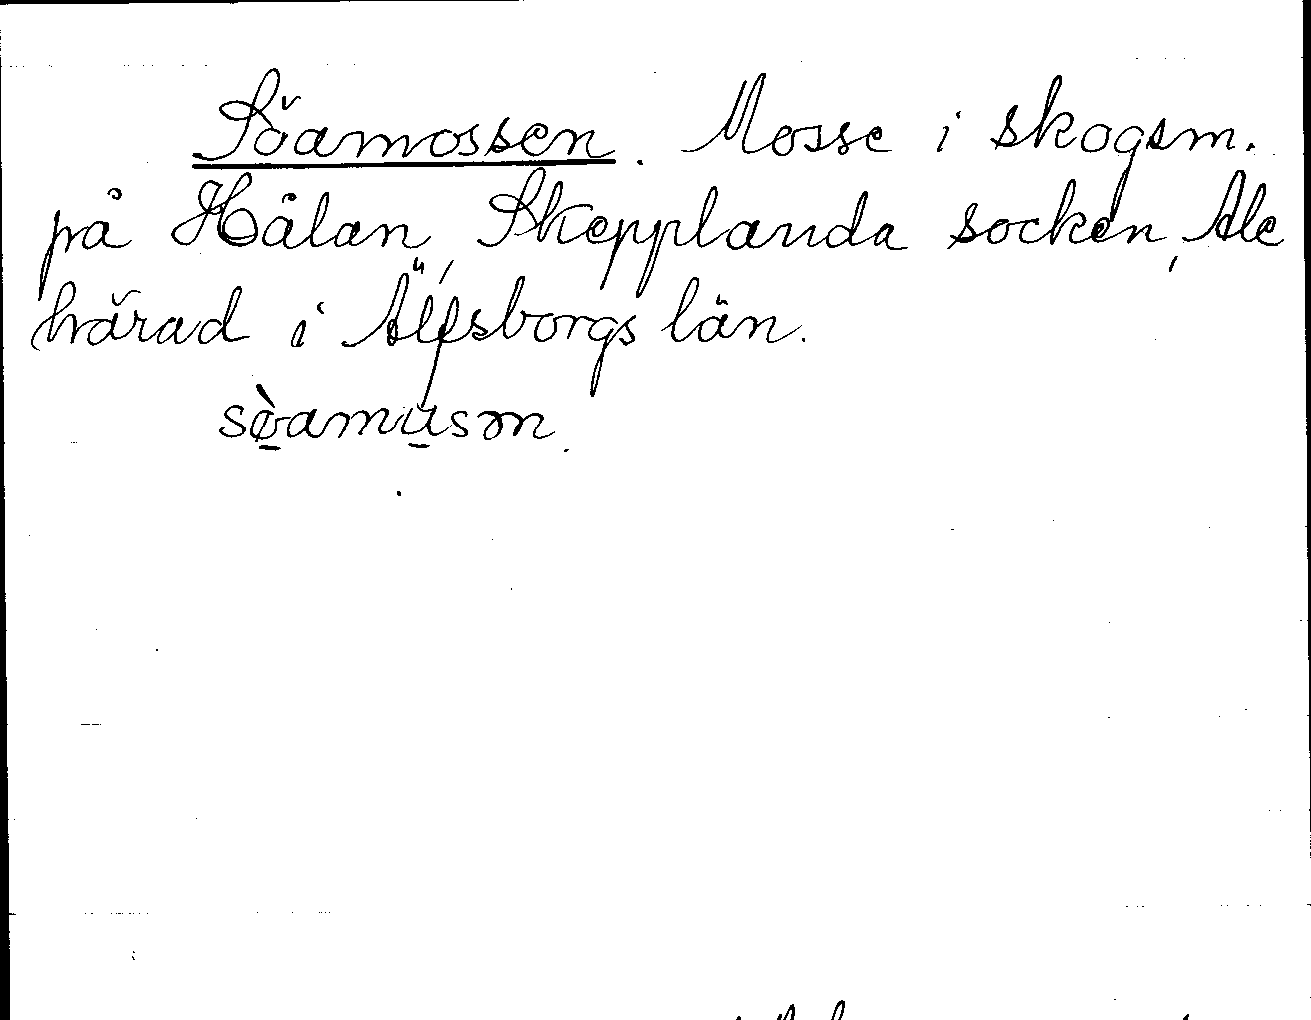 Söamossen. Mosse i skogsm.
på Hålan, Skepplanda socken, Ale
härad i Älfsborgs län.
sɵ̠̀amu̠sən.